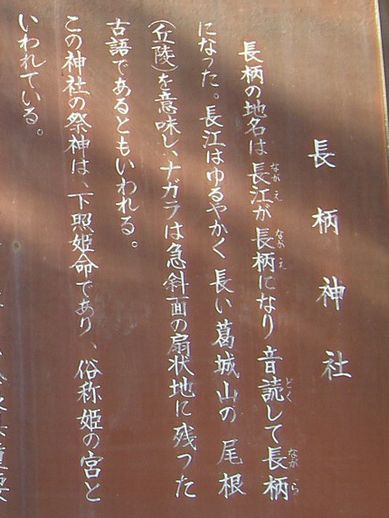 長柄神社
長柄の地名は長江が長柄になり音読して長柄
になった。長江はゆるやかく長い葛城山の尾根
(丘陵)を意味し、ナガラは急斜面の扇状地に残った
古語であるともいわれる。
この神社の祭神は、下照姫命であり、俗称姫の宮と
いわれている。